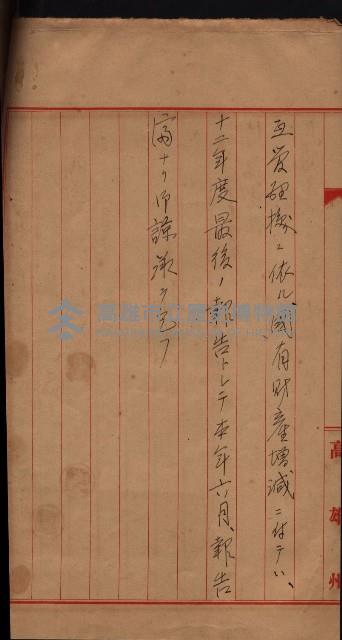 互受授機ニ依ル國有財産増減ニ付テハ、
十二年度最後ノ報告トシテ本年六月報告
ナリ御諒承ヲ乞フ
高雄州
高雄市立歷史博物館